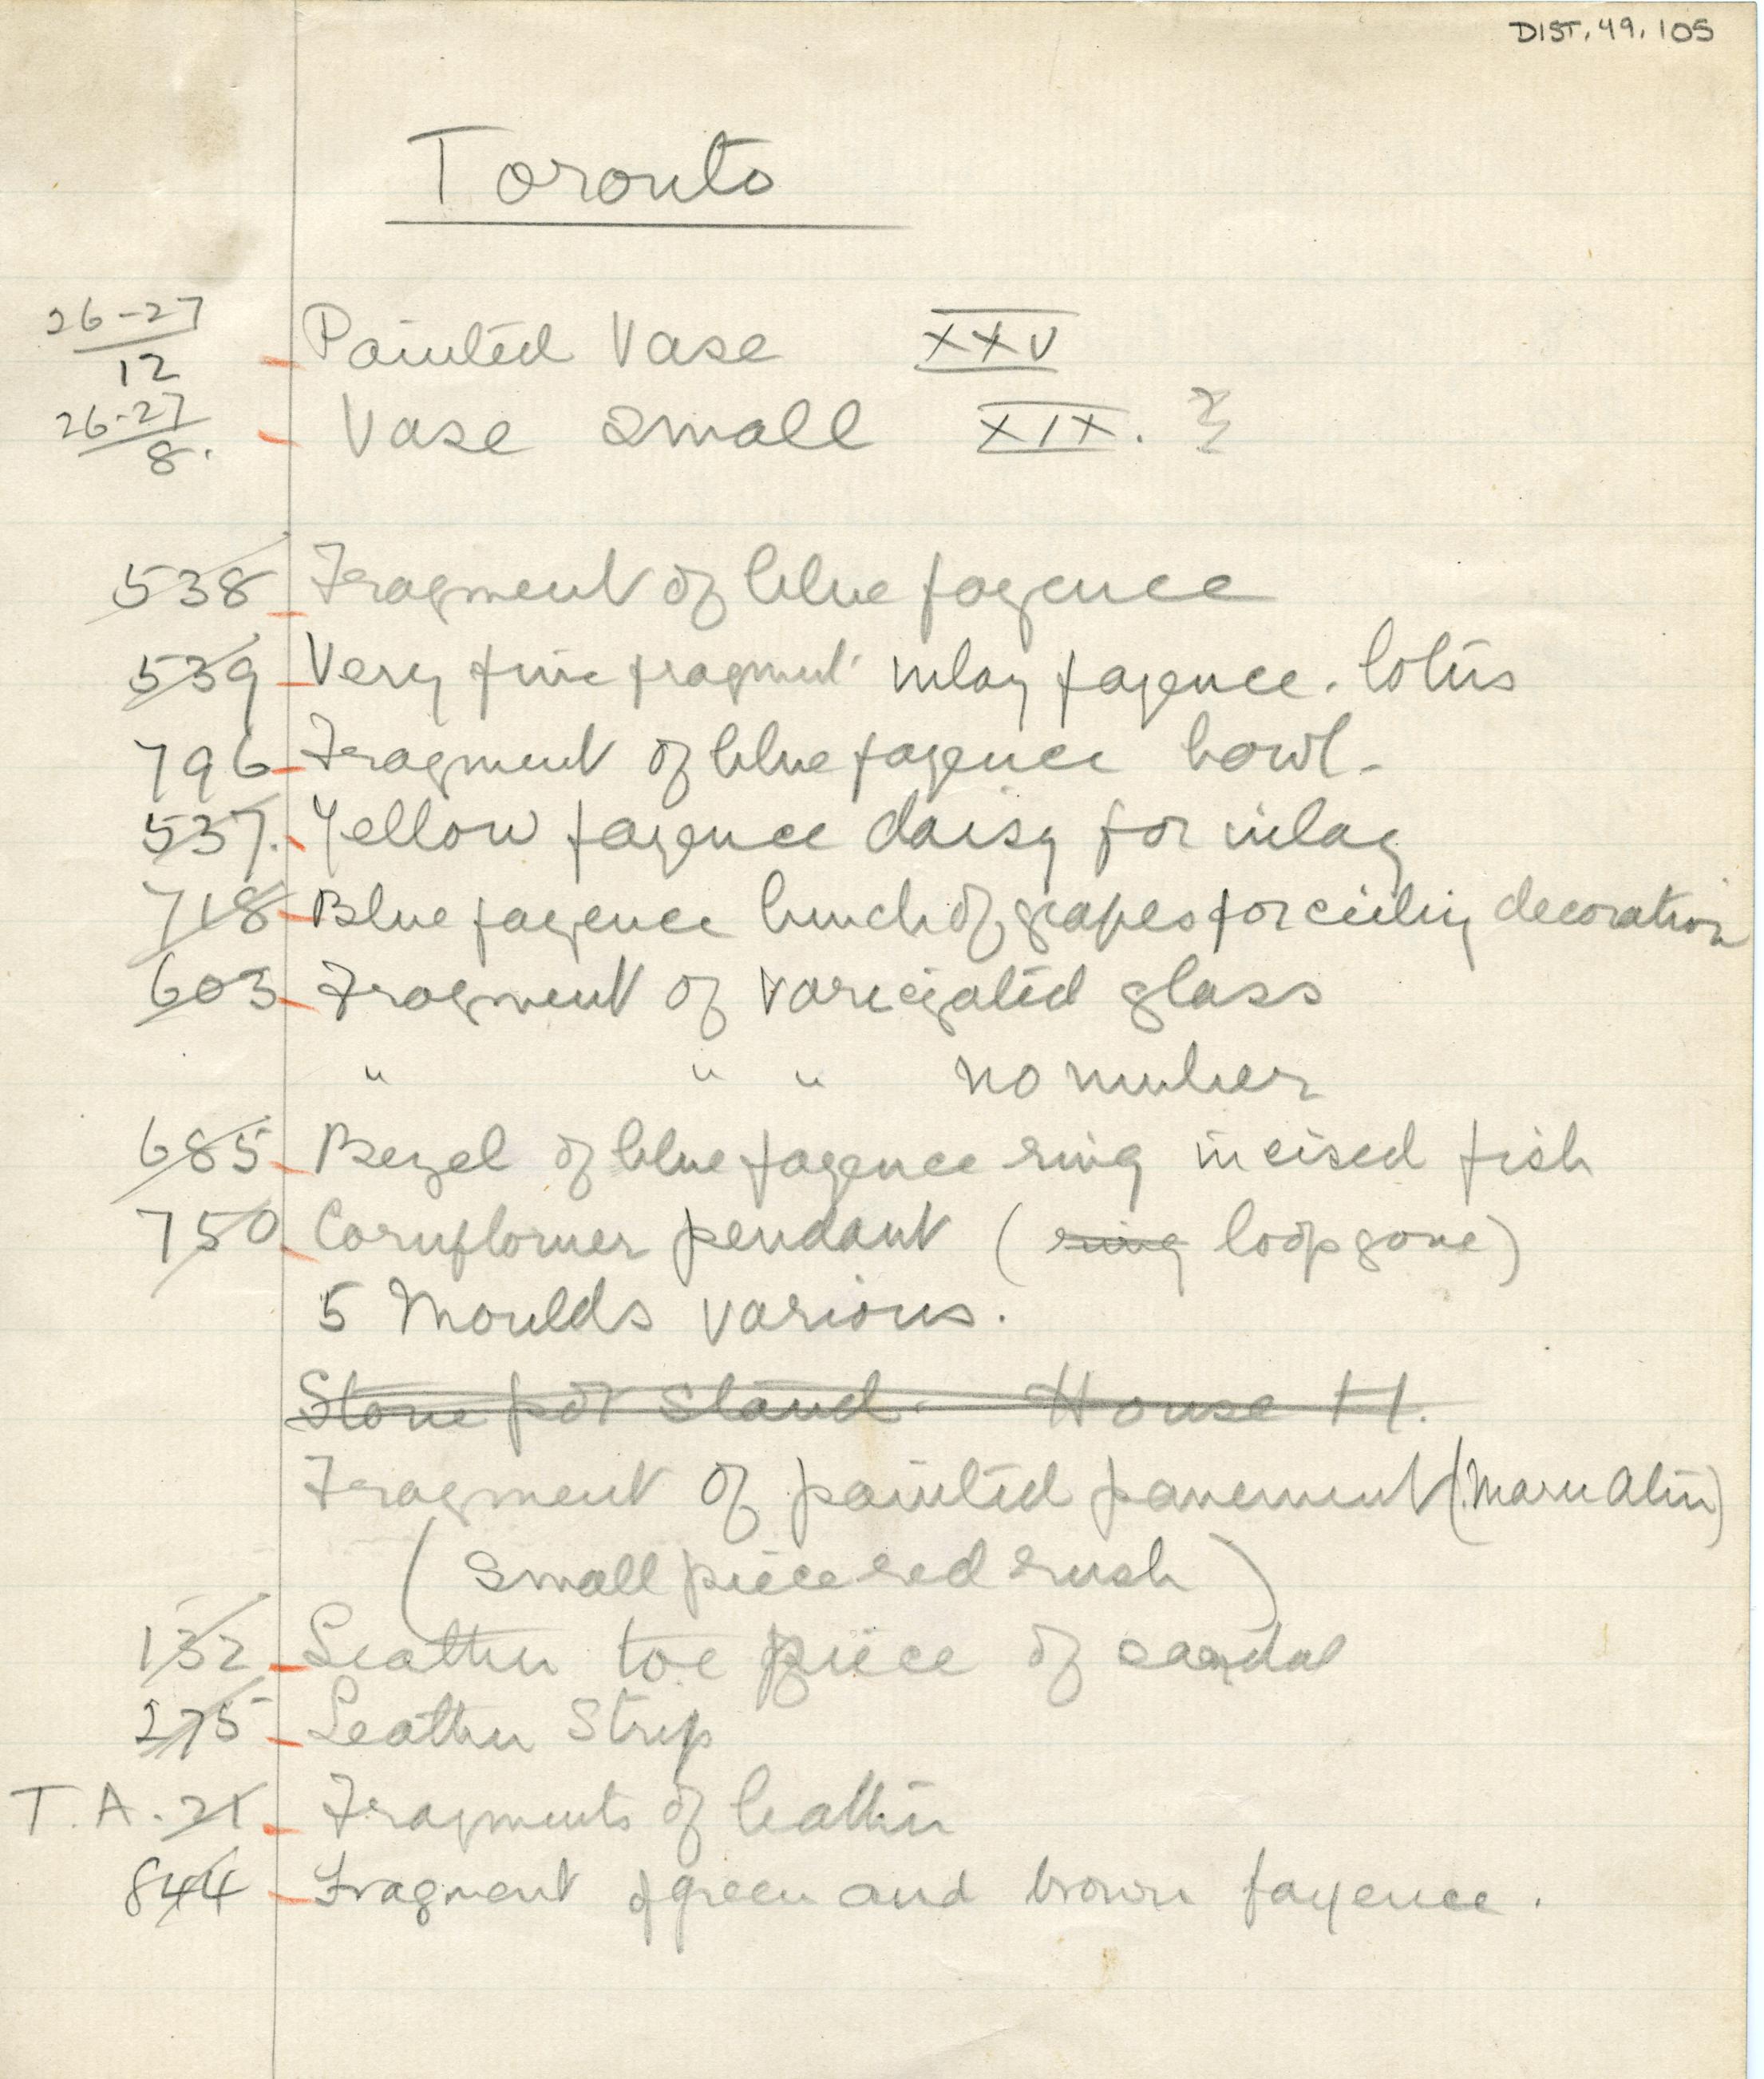 DIST. 49. 105
Toronto
26-27
12
Painted Vase XXV
26-27
8.
Vase small XIX. }
538 Fragment of blue fayence
539 Very fine fragment inlay fayence. lotus
796 Fragment of blue fayence bowl.
537. Yellow fayence daisy for inlay
718 Blue fayence bunch of grapes for ceiling decoration
603 Fragment of variegated glass
" " " no number
685 Bezel of blue fayence ring incised fish
750 Cornflower pendant (ring loop gone)
5 Moulds various.
Stone pot stand. House H.
Fragment of painted pavement (Maru Aten)
(small piece red rush)
132 Leather toe piece of sandal
275 Leather Strip
T.A. 21 Fragments of leather
844 Fragment of green and brown fayence.